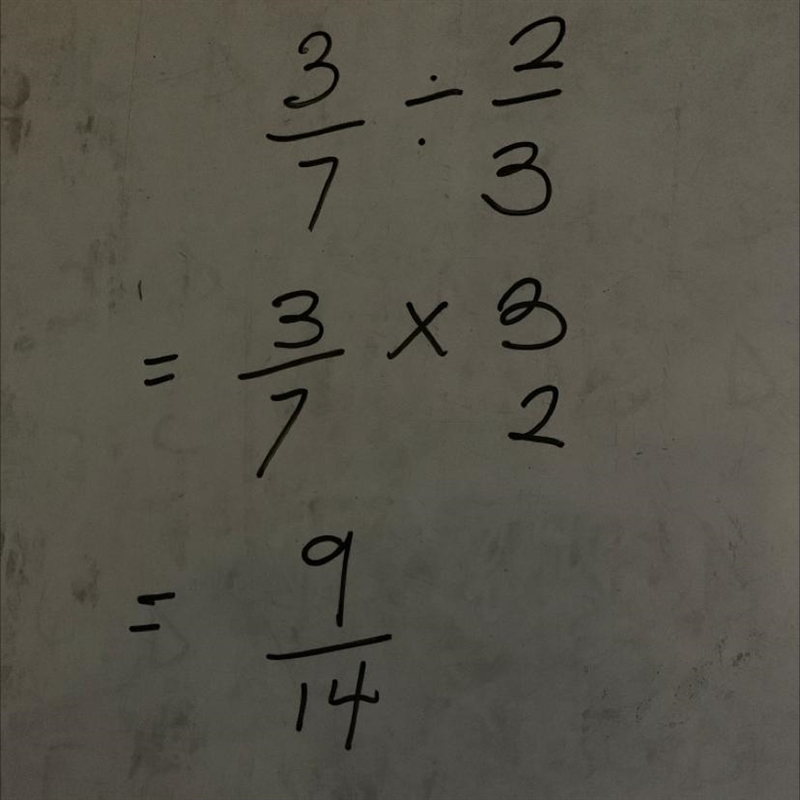 3/7 ÷ 2/3
= 3/7 × 3 2
= 9/14